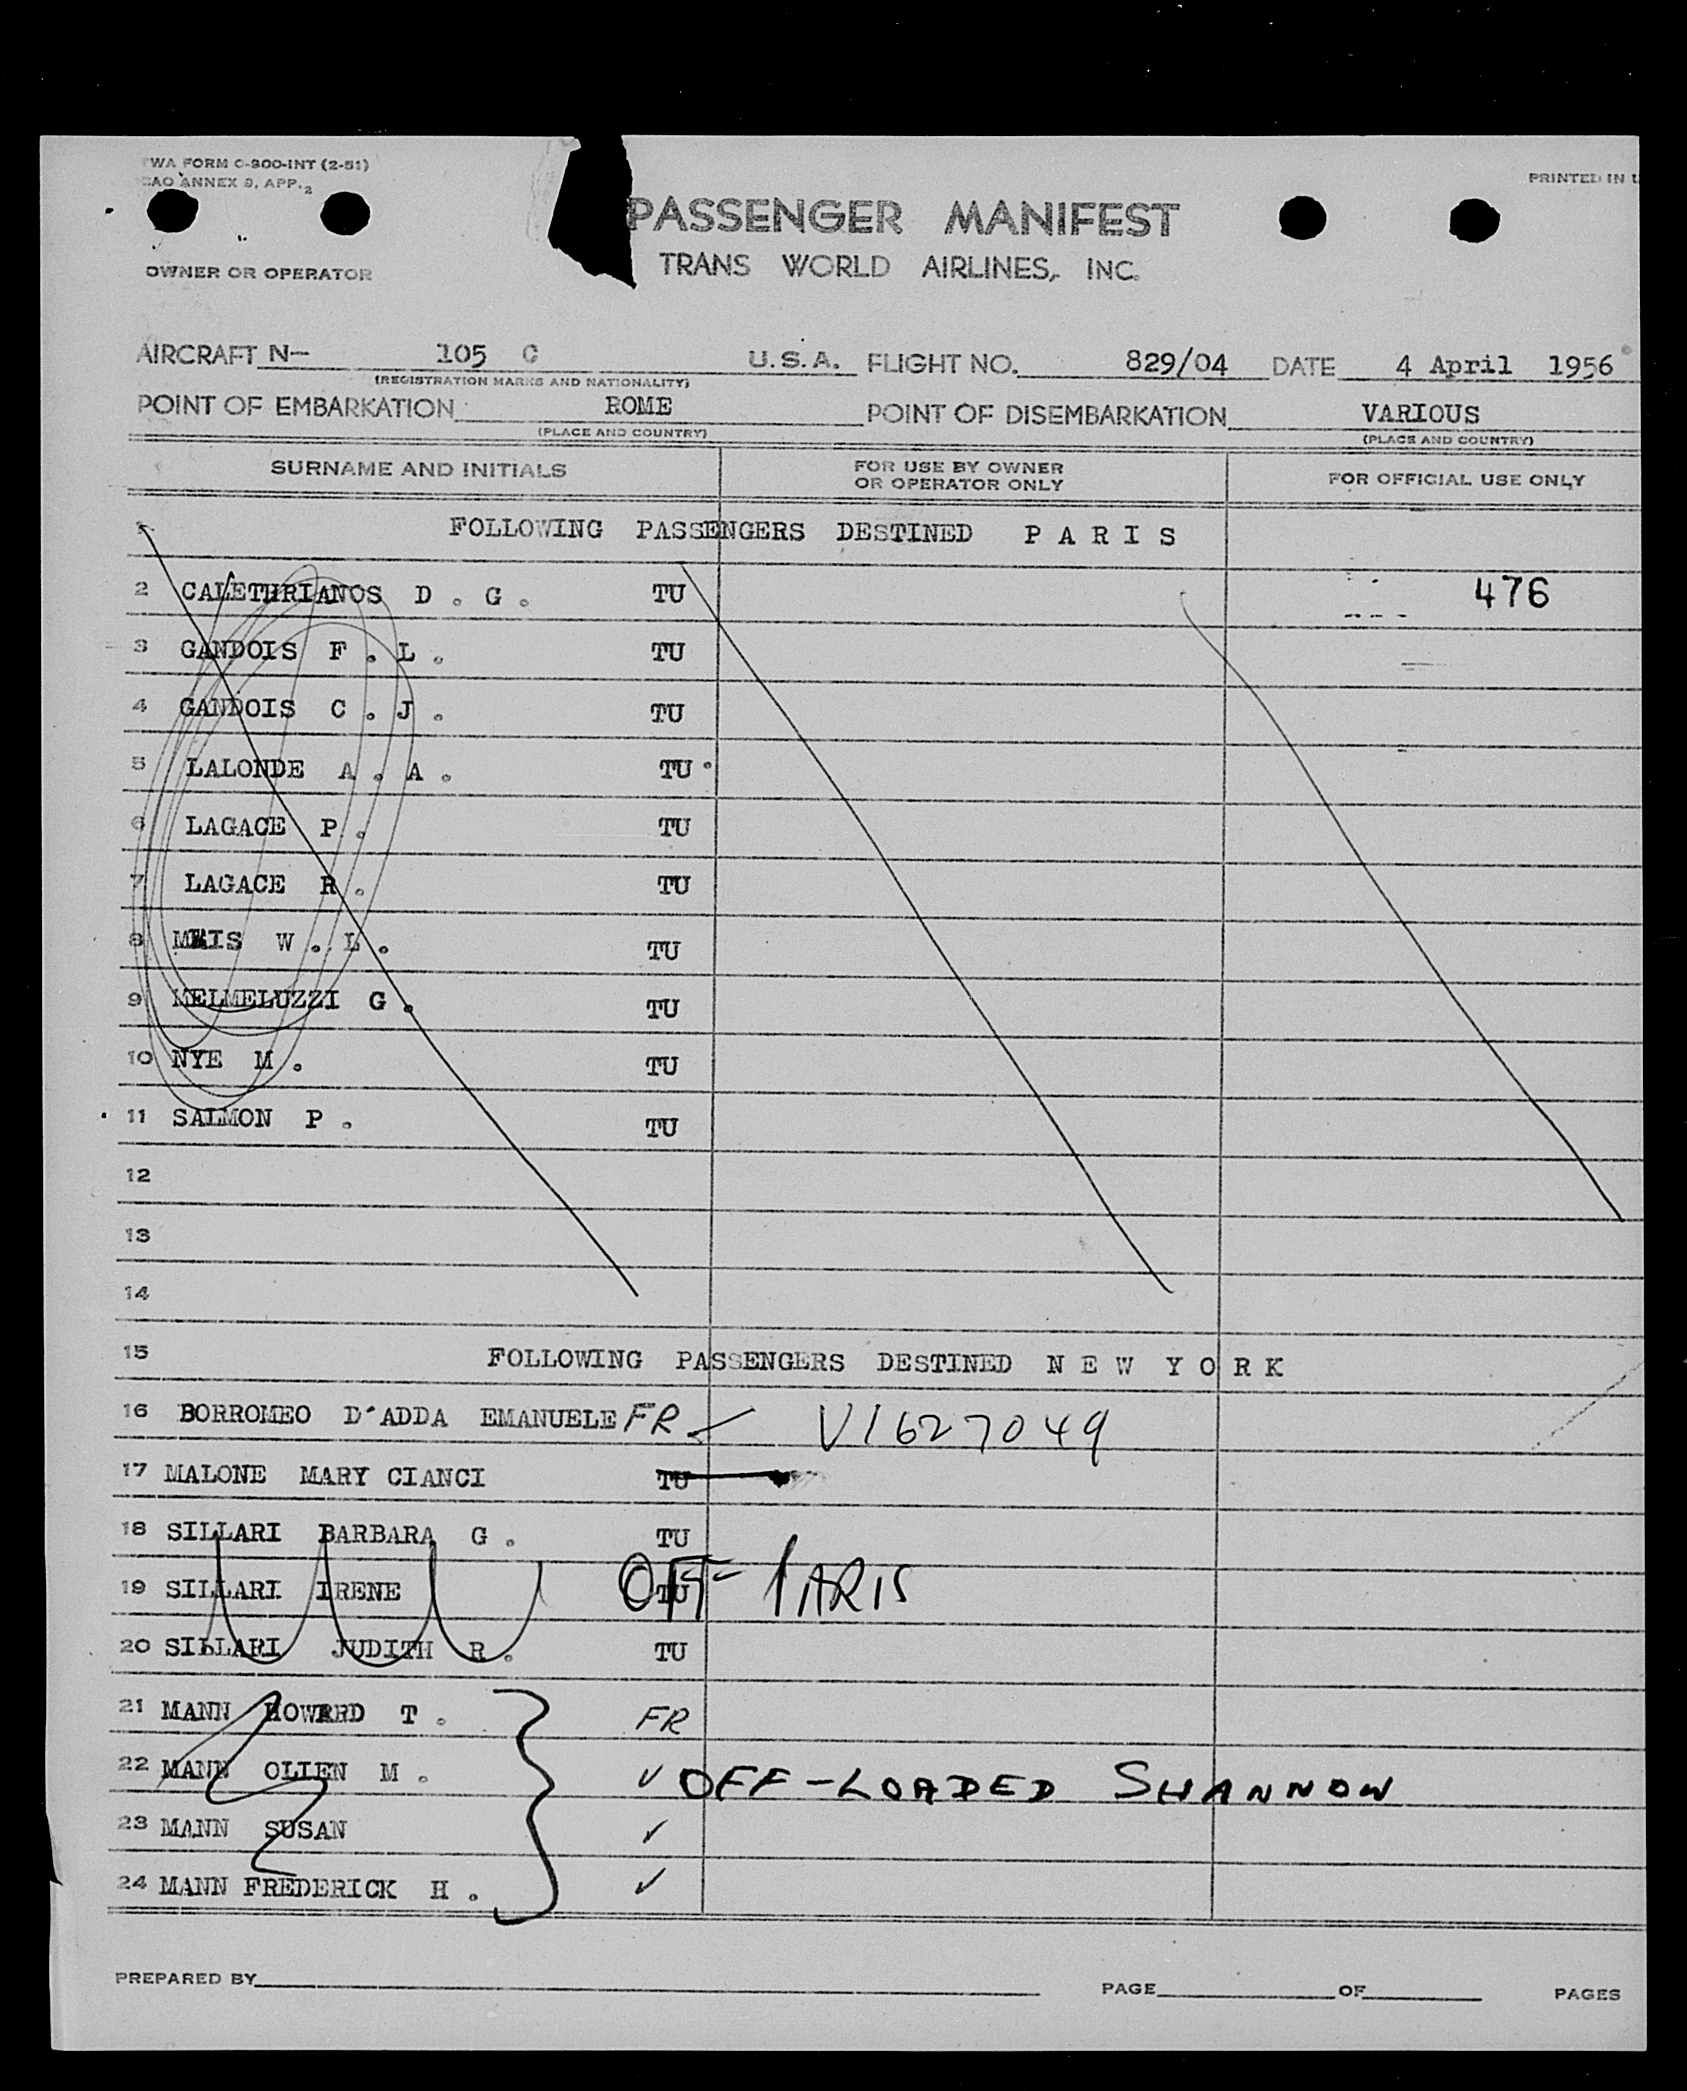 TWA FORM C-800-INT (2-51)
ICAO ANNEX 9, APP. 2
PRINTED IN U
PASSENGER MANIFEST
OWNER OR OPERATOR
TRANS WORLD AIRLINES, INC.
AIRCRAFT N- 105 C U.S.A. FLIGHT NO. 829/04 DATE 4 April 1956
(REGISTRATION MARKS AND NATIONALITY)
POINT OF EMBARKATION ROME POINT OF DISEMBARKATION VARIOUS
(PLACE AND COUNTRY) (PLACE AND COUNTRY)
SURNAME AND INITIALS FOR USE BY OWNER OR OPERATOR ONLY FOR OFFICIAL USE ONLY
1 FOLLOWING PASSENGERS DESTINED P A R I S
2 CALETHRIANOS D . G . TU 476
3 GANDOIS F . L . TU
4 GANDOIS C . J . TU
5 LALONDE A . A . TU
6 LAGACE P . TU
7 LAGACE R . TU
8 W . L . TU
9 MELMELUZZI G . TU
10 NYE M . TU
11 SALMON P . TU
12
13
14
15 FOLLOWING PASSENGERS DESTINED N E W Y O R K
16 BORROMEO D'ADDA EMANUELE FR ✓ V1627049
17 MALONE MARY CIANCI TU
18 SILLARI BARBARA G . TU
19 SILLARI IRENE TU OFF PARIS
20 SILLARI JUDITH R . TU
21 MANN HOWARD T . FR
22 MANN OLIEN M . ✓ OFF-LOADED SHANNON
23 MANN SUSAN ✓
24 MANN FREDERICK H . ✓
PREPARED BY PAGE OF PAGES